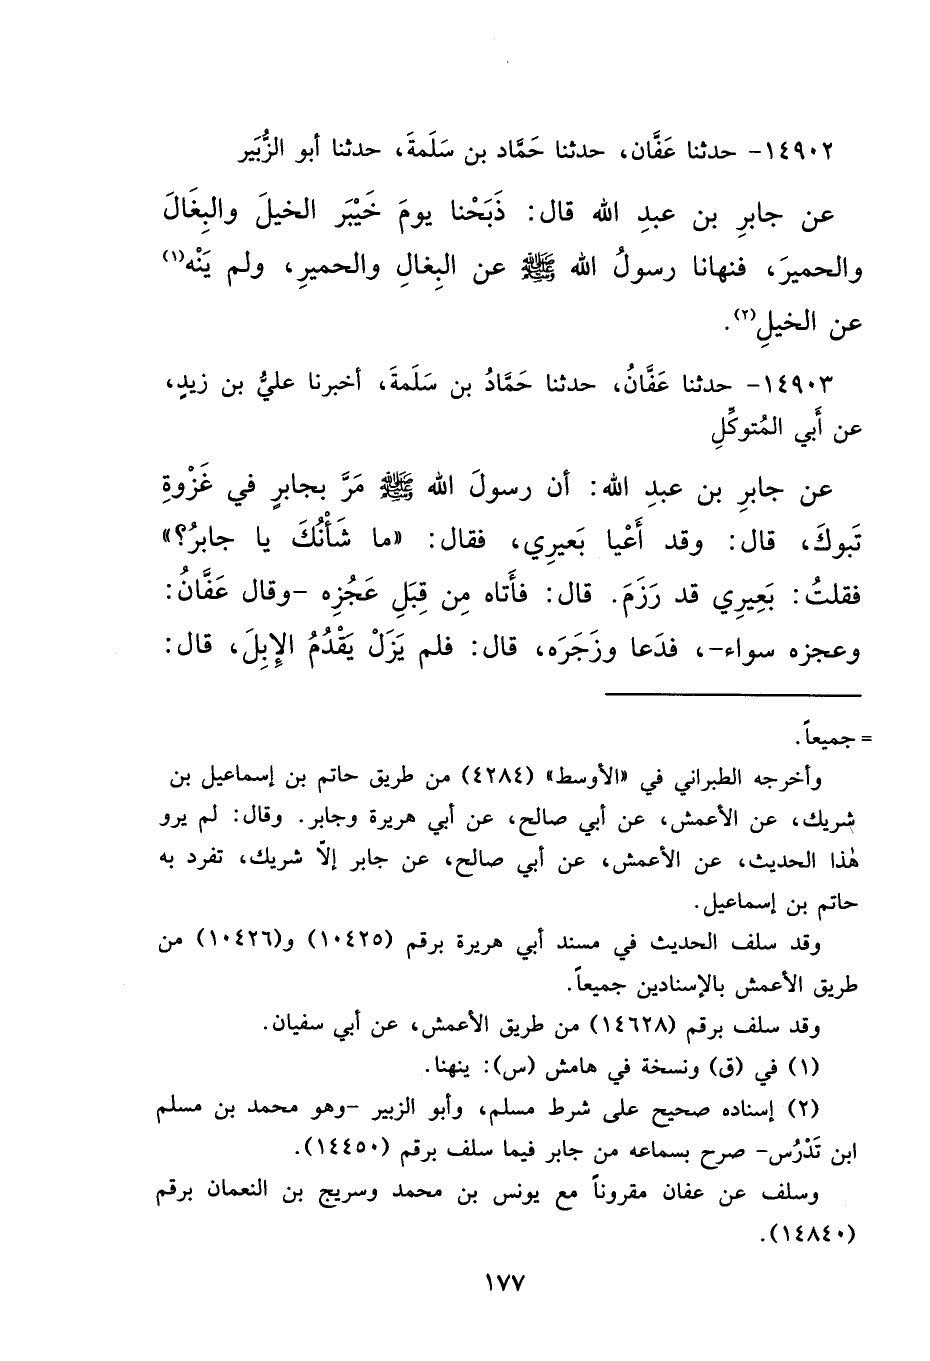 ١٤٩٠٢- حدثنا عَفَّان، حدثنا حَمَّاد بن سَلَمةَ، حدثنا أبو الزُّبَير
عن جابرِ بن عبدِ الله قال: ذَبَحْنا يومَ خَيْبَر الخيلَ والبِغَالَ
والحميرَ، فنهانا رسولُ الله ﷺ عن البِغالِ والحميرِ، ولم يَنْه(١)
عن الخيلِ(٢).
١٤٩٠٣- حدثنا عَفَّانُ، حدثنا حَمَّادُ بن سَلَمةَ، أخبرنا عليُّ بن زيدٍ،
عن أَبي المُتوكِّلِ
عن جابرِ بن عبدِ الله: أن رسولَ الله ﷺ مَرَّ بجابرٍ في غَزْوةِ
تَبوكَ، قال: وقد أَعْيا بَعيرِي، فقال: «ما شَأْنُكَ يا جابرُ؟»
فقلتُ: بَعِيرِي قد رَزَمَ. قال: فأَتاه مِن قِبَلِ عَجُزِه -وقال عَفَّانُ:
وعجزه سواء-، فدَعا وزَجَرَه، قال: فلم يَزَلْ يَقْدُمُ الإِبِلَ، قال:
= جميعاً.
وأخرجه الطبراني في «الأوسط» (٤٢٨٤) من طريق حاتم بن إسماعيل بن
شريك، عن الأعمش، عن أبي صالح، عن أبي هريرة وجابر. وقال: لم يرو
هٰذا الحديث، عن الأعمش، عن أبي صالح، عن جابر إلاّ شريك، تفرد به
حاتم بن إسماعيل.
وقد سلف الحديث في مسند أبي هريرة برقم (١٠٤٢٥) و(١٠٤٢٦) من
طريق الأعمش بالإسنادين جميعاً.
وقد سلف برقم (١٤٦٢٨) من طريق الأعمش، عن أبي سفيان.
(١) في (ق) ونسخة في هامش (س): ينهنا.
(٢) إسناده صحيح على شرط مسلم، وأبو الزبير -وهو محمد بن مسلم
ابن تَدْرُس- صرح بسماعه من جابر فيما سلف برقم (١٤٤٥٠).
وسلف عن عفان مقروناً مع يونس بن محمد وسريج بن النعمان برقم
(١٤٨٤٠).
١٧٧